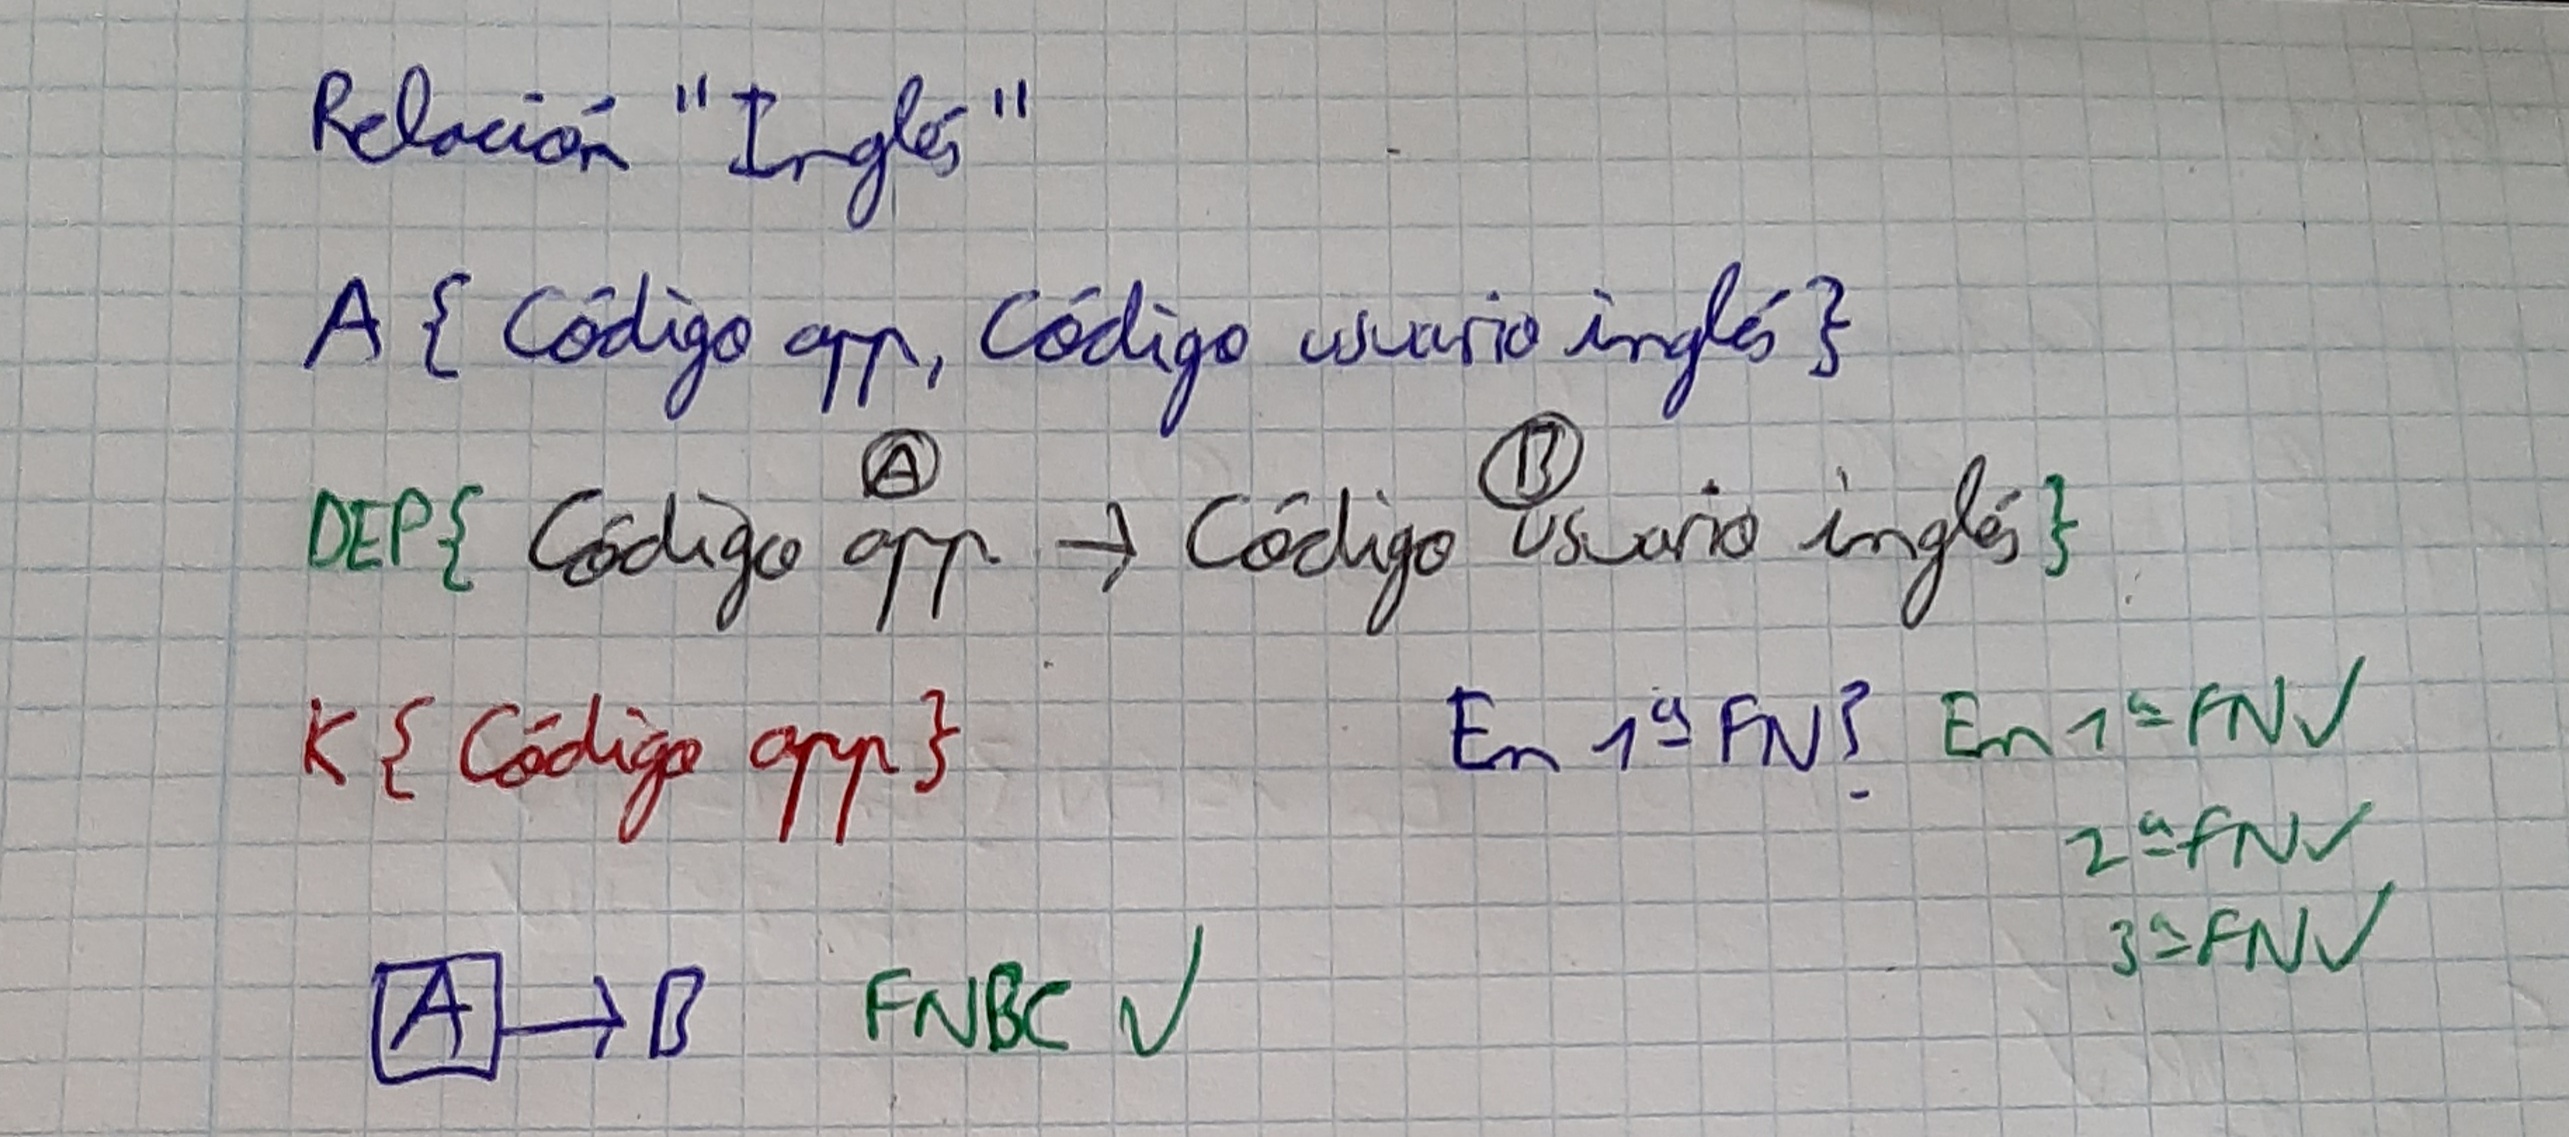 Relación "Inglés"
A { Código app, Código usuario inglés }
Ⓐ Ⓑ
DEP{ Código app → Código usuario inglés }
K { Código app } En 1ª FN? En 1ª FN ✓
2ª FN ✓
3ª FN ✓
A → B FNBC ✓